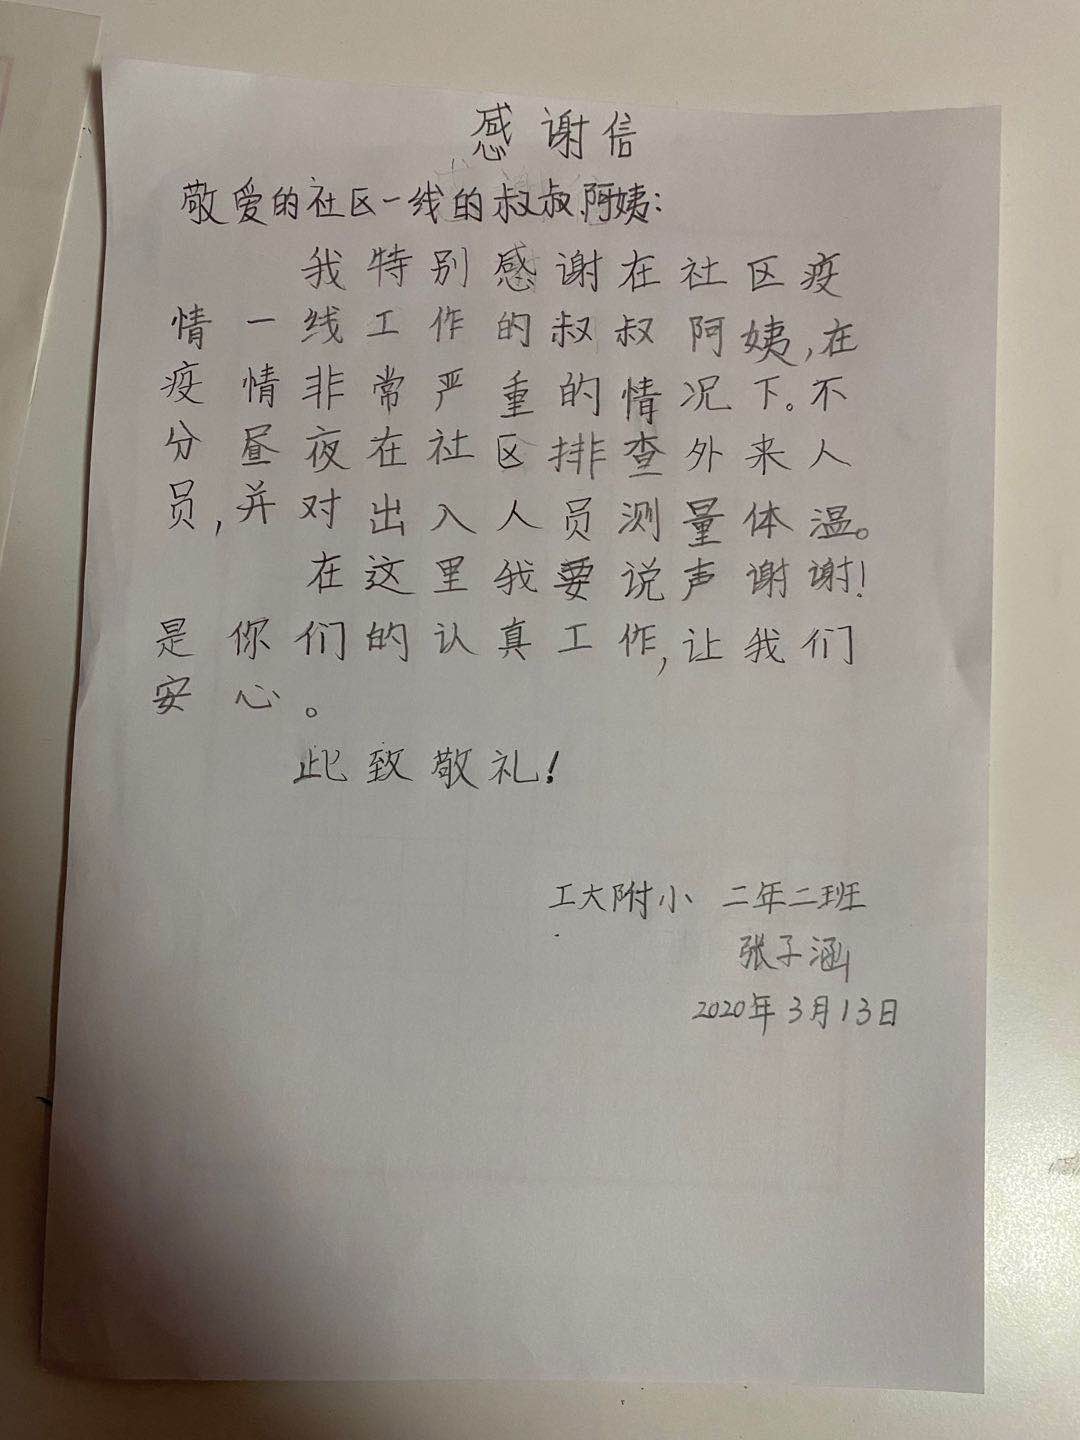 感谢信
敬爱的社区一线的叔叔、阿姨:
我特别感谢在社区疫
情一线工作的叔叔阿姨,在
疫情非常严重的情况下。不
分昼夜在社区排查外来人
员,并对出入人员测量体温。
在这里我要说声谢谢!
是你们的认真工作,让我们
安心。
此致敬礼!
工大附小 二年二班
张子涵
2020年3月13日